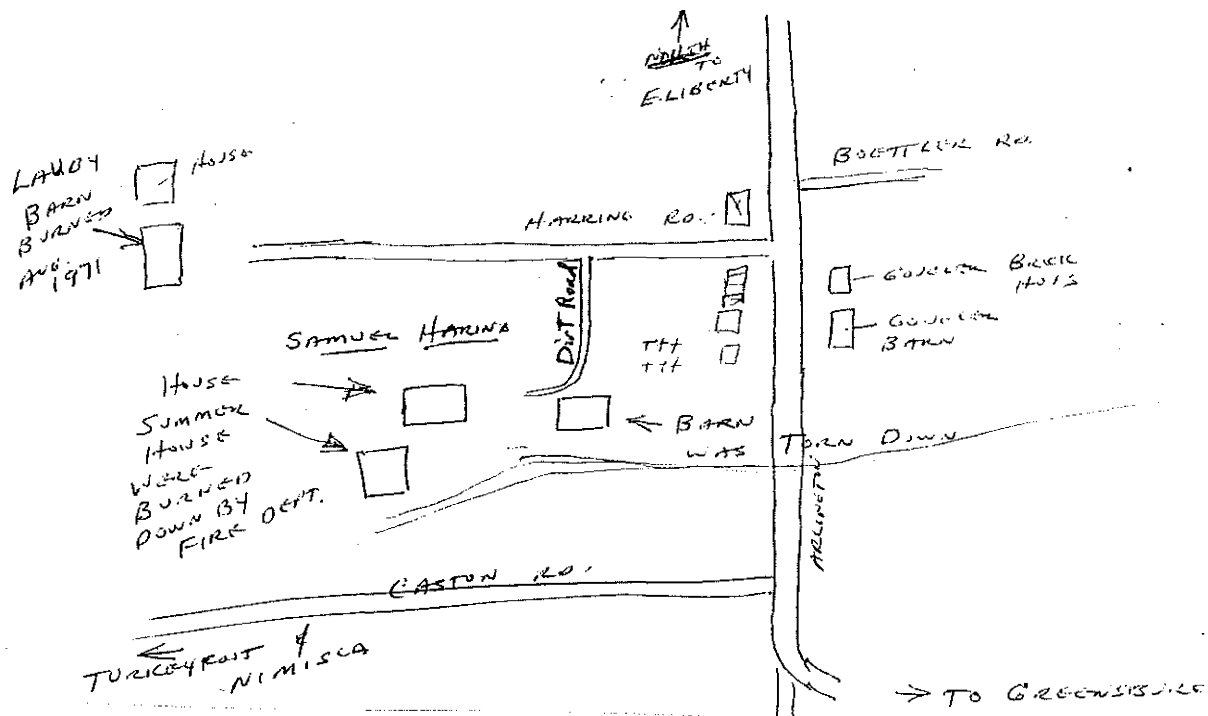 NORTH
TO
E.LIBERTY
BOETTLER RD.
LAUBY
BARN
BURNED
AUG.
1971
HOUSE
HARRING RD.
GOUCLER BRICK
GOUCLER
BARN
Dirt Road
SAMUEL HARING
HOUSE
SUMMER
HOUSE
WERE
BURNED
DOWN BY
FIRE DEPT.
← BARN
WAS TORN DOWN
ARLINGTON
CASTON RD.
TURKEYFOOT &
NIMISLA
→ TO GREENSBURG